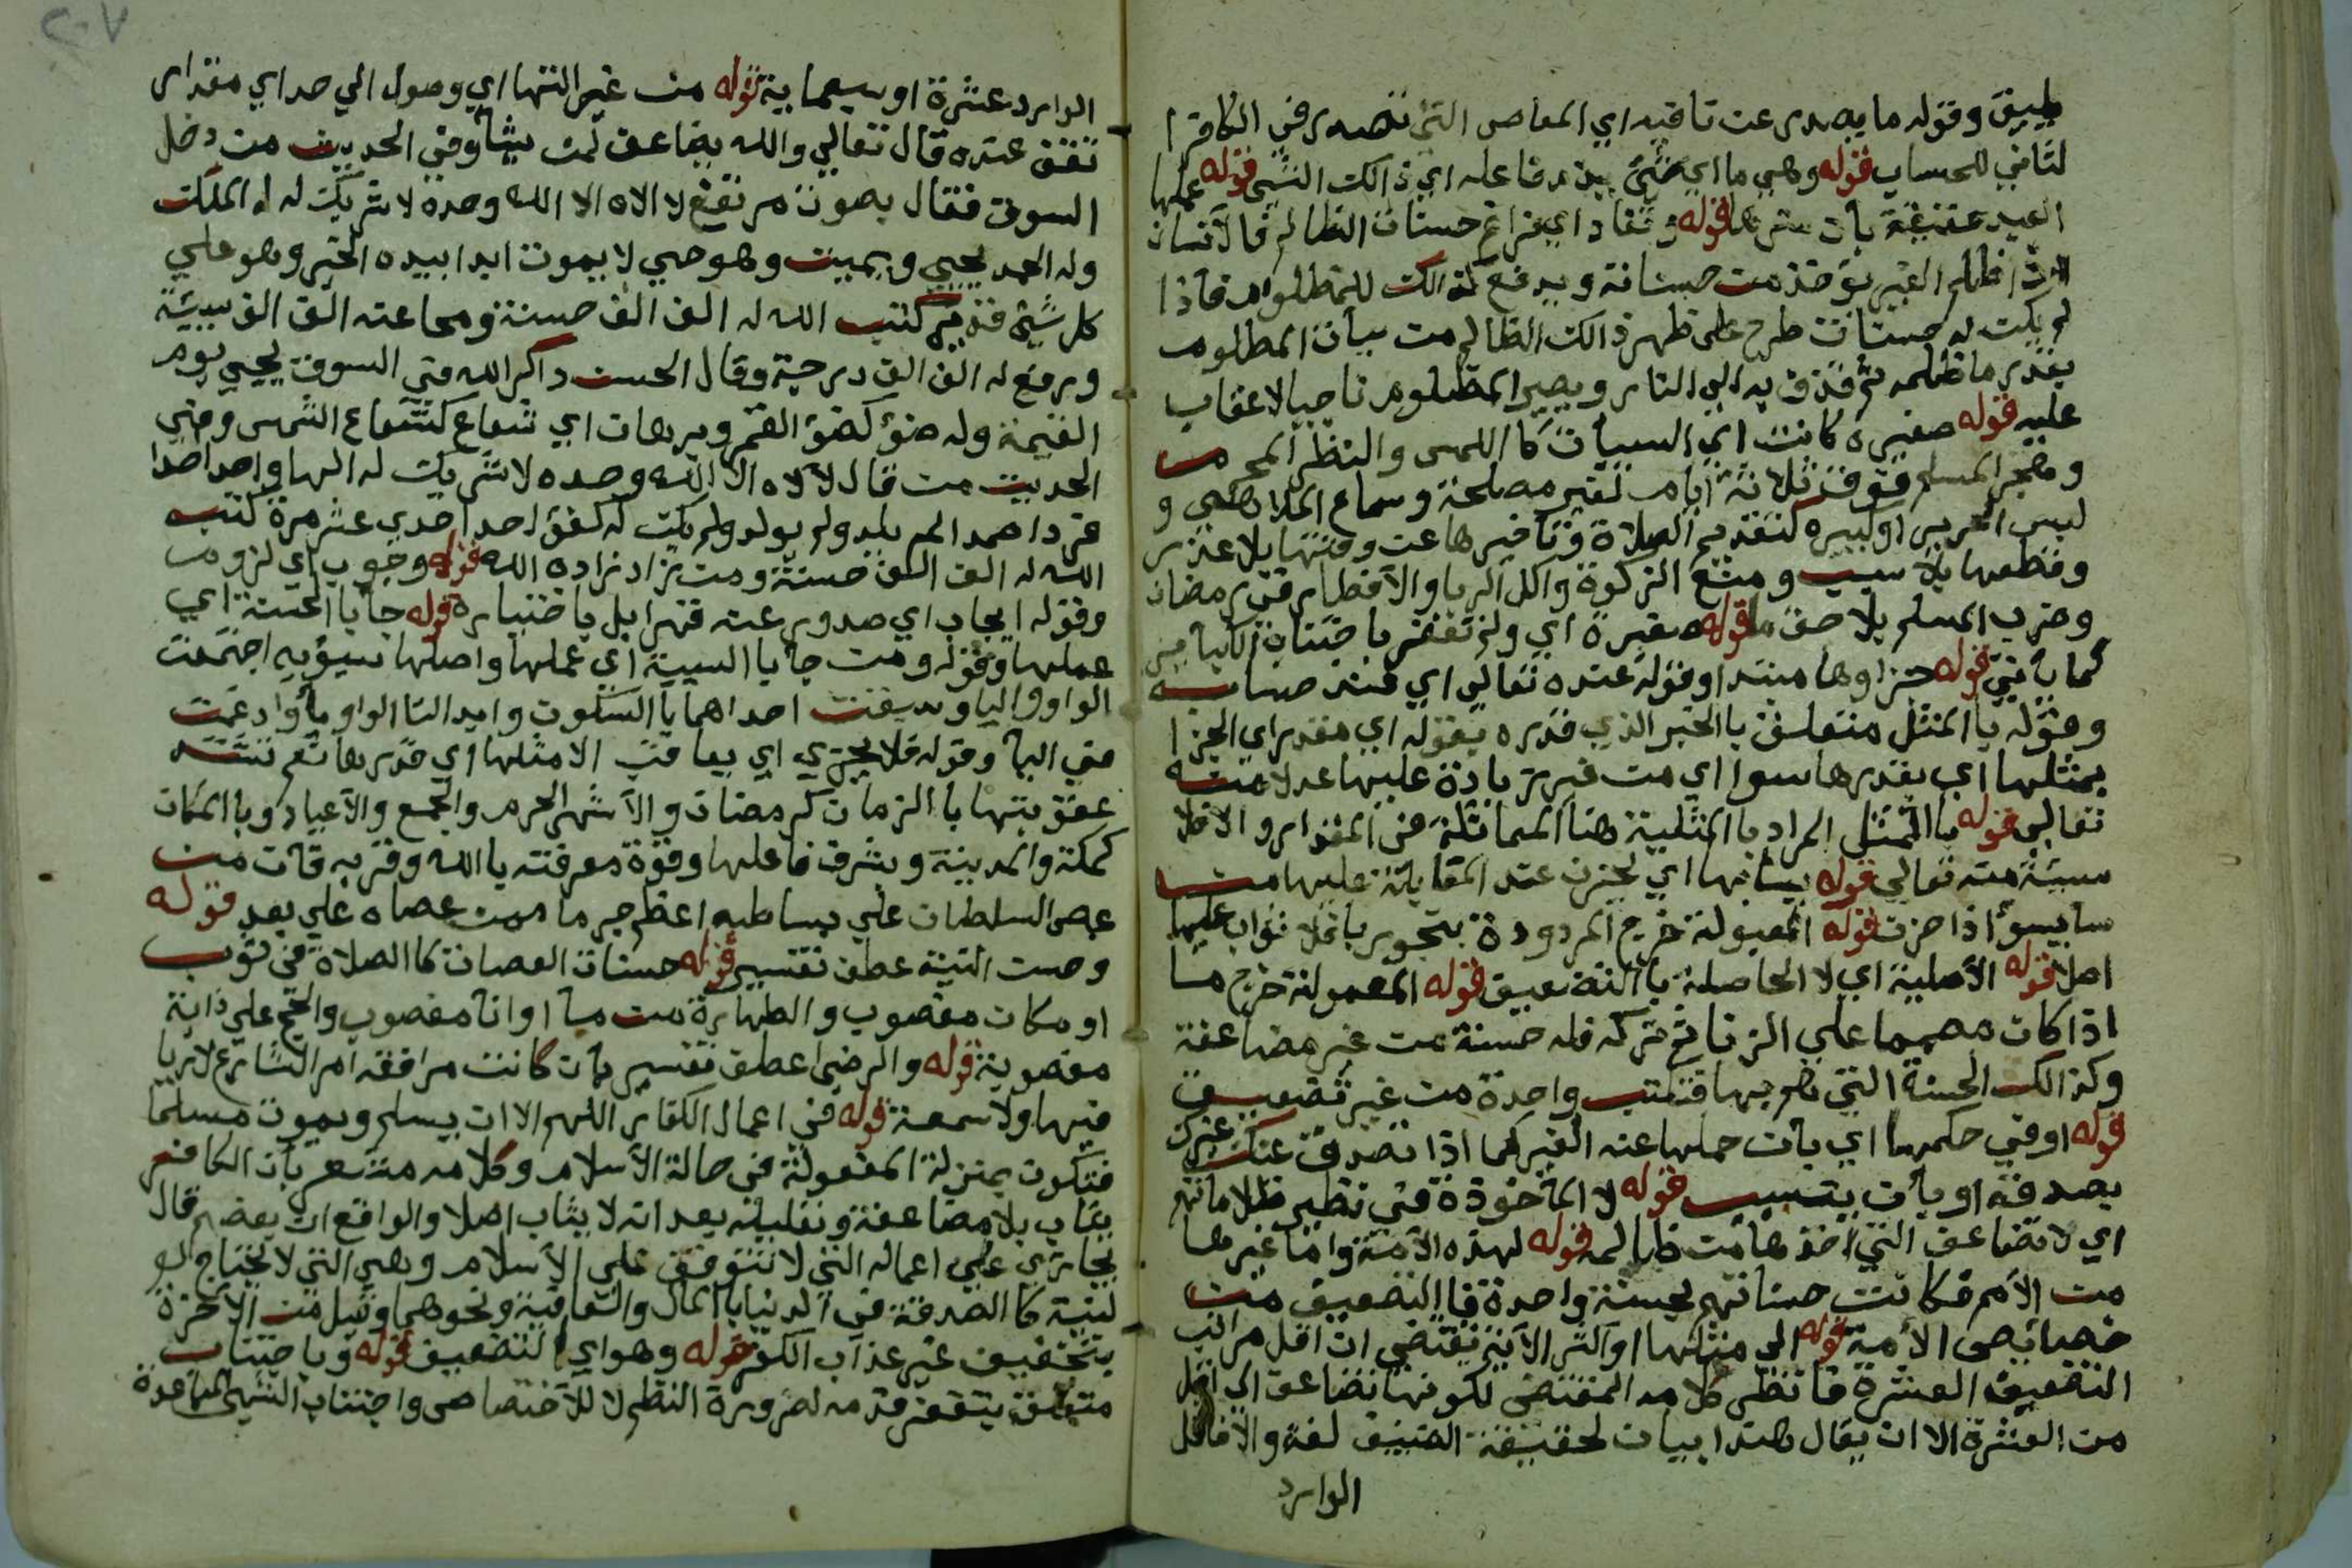 طبيق وقوله ما يصدر عن تاقيه اي المعاصي التي تصدر في الكافر ا
لثاني للحساب قوله وهي ما اي شئ يذم فاعله اي ذالك الشئ قوله عملها
العبد حقيقة بان قوله وتفاد اي فراغ حسنات الظالم فالانسان
اذا ظلم الغير يؤخذ من حسناته ويدفع ذالك للمظلوم فاذا
لم يكن له حسنات طرح على ظهر ذالك الظالم من سيات المظلوم
بقدر ما ظلمه ثم قذف به الي النار ويصير المظلوم ناجيا لا عقاب
عليه قوله صغيرة كانت اي السيات كا اللمس والنظر المحرمين
وهجر المسلم فوق ثلاثة ايام لغير مصلحة وسماع الملاهي و
لبس الحرير او لبيره كتقديم الصلاة وتاخيرها عن وقتها بلا عذر
وقطعها بلا سبب ومنع الزكوة واكل الربا والافطار في رمضان
وضرب المسلم بلا حق قوله صغيرة اي ولم تغفر باجتناب الكباير
كما ياتي قوله جزاوها مبتدا وقوله عنده تعالي اي عند حسابه
وقوله با المثل متعلق با الخبر الذي قدره بقوله اي مقدر اي الجزا
بمثلها اي بقدرها سوا اي من غير زيادة عليها عدلا منه
تعالي قوله با المثل المراد با المثلية هنا المماثلة في المقدار والا فلا
سيئة منه تعالي قوله بيسانها اي يحزن عند المقابلة عليها من
سا يسؤ اذا حزن قوله المقبولة خرج المردودة بنحو ريا فلا ثواب عليها
اصلا قوله الاصلية اي لا الحاصلة با التضعيف قوله المعمولة خرج ما
اذا كان مصمما علي الزنا ثم تركه فله حسنة من غير مضاعفة
وكذالك الحسنة التي هم بها فتكتب واحدة من غير تضعيف
قوله او في حكمها اي بان عملها عنه الغير كما اذا تصدق عنك غيرك
بصدقة او بان يتسبب قوله لا الماخوذة في نظير ظلامة
اي لا تضاعف التي اخذها من ظالمه قوله لهذه الامة واما غيرها
من الامم فكانت حسناتهم بحسنة واحدة فا التضعيف من
خصايص الامة قوله الي مثلها او اكثر الاية تقتضي ان اقل مراتب
التضعيف العشرة فانظر كلامه المقتضي لكونها تضاعف الي اقل
من العشرة الا ان يقال هذا بيان لحقيقة التضعيف لغة والا فاقل
الوارد
الوارد عشرة او سبعماية قوله من غير انتها اي وصول الي حد اي مقدار
تقف عنده قال تعالي والله يضاعف لمن يشا وفي الحديث من دخل
السوق فقال بصوت مرتفع لا الاه الا الله وحده لا شريك له له الملك
وله الحمد يحيي ويميت وهو حي لا يموت ابدا بيده الخير وهو علي
كل شئ قدير كتب الله له الف الف حسنة ومحا عنه الف الف سيئة
ورفع له الف الف درجة وقال الحسن ذاكر الله في السوق يجيي يوم
القيمة وله ضؤ كضؤ القمر وبرهان اي شعاع كشعاع الشمس وفي
الحديث من قال لا الاه الا الله وحده لا شريك له الها واحدا احدا
فردا صمدا لم يلد ولم يولد ولم يكن له كفؤ احد احدي عشر مرة كتب
الله له الف الف حسنة ومن زاد زاده الله قوله وجوب اي لزوم
وقوله ايجاب اي صدور عنه قهرا بل باختياره قوله جا با الحسنة اي
عملها وقوله ومن جا با السيية اي عملها واصلها سيويه اجتمعت
الواو واليا وسبقت احداهما با السكون وابدلتا الواو يا وادغمت
في اليا وقوله فلا يجزي اي يعاقب الا مثلها اي قدرها نعم تتفاوت
عقوبتها با الزمان كرمضان والاشهر الحرم والجمع والاعياد وبا المكان
كمكة والمدينة وبشرف فاعلها وقوة معرفته با الله وقربه فان من
عصى السلطان علي بساطه اعظم جرما ممن عصاه علي بعد قوله
وحسن النية عطف تفسير قوله حسنات العصاة كا الصلاة في ثوب
او مكان مغصوب والطهارة من ما او انا مغصوب والحج علي دابة
مغصوبة قوله والرضي اعطف تفسير بان كانت مرافقة امر الشارع لا ريا
فيها ولا سمعة قوله في اعمال الكفار اللهم الا ان يسلم ويموت مسلما
فتكون بمنزلة المفعولة في حالة الاسلام وكلامه مشعر بان الكافر
يثاب بلا مضاعفة ونقليله بعد انه لا يثاب اصلا والواقع ان بعضهم قال
يجازي علي اعماله التي لا تتوقف علي الاسلام وهي التي لا تحتاج لو
لنية كا الصدقة في الدنيا با المال والعافية ونحوهما وقيل من الاخرة
بتخفيف غير عذاب الكفر قوله وهو اي التضعيف قوله وباجتناب
متعلق بتغفر قدمه لضرورة النظم لا للاختصاص واجتناب الشيئ المباعدة